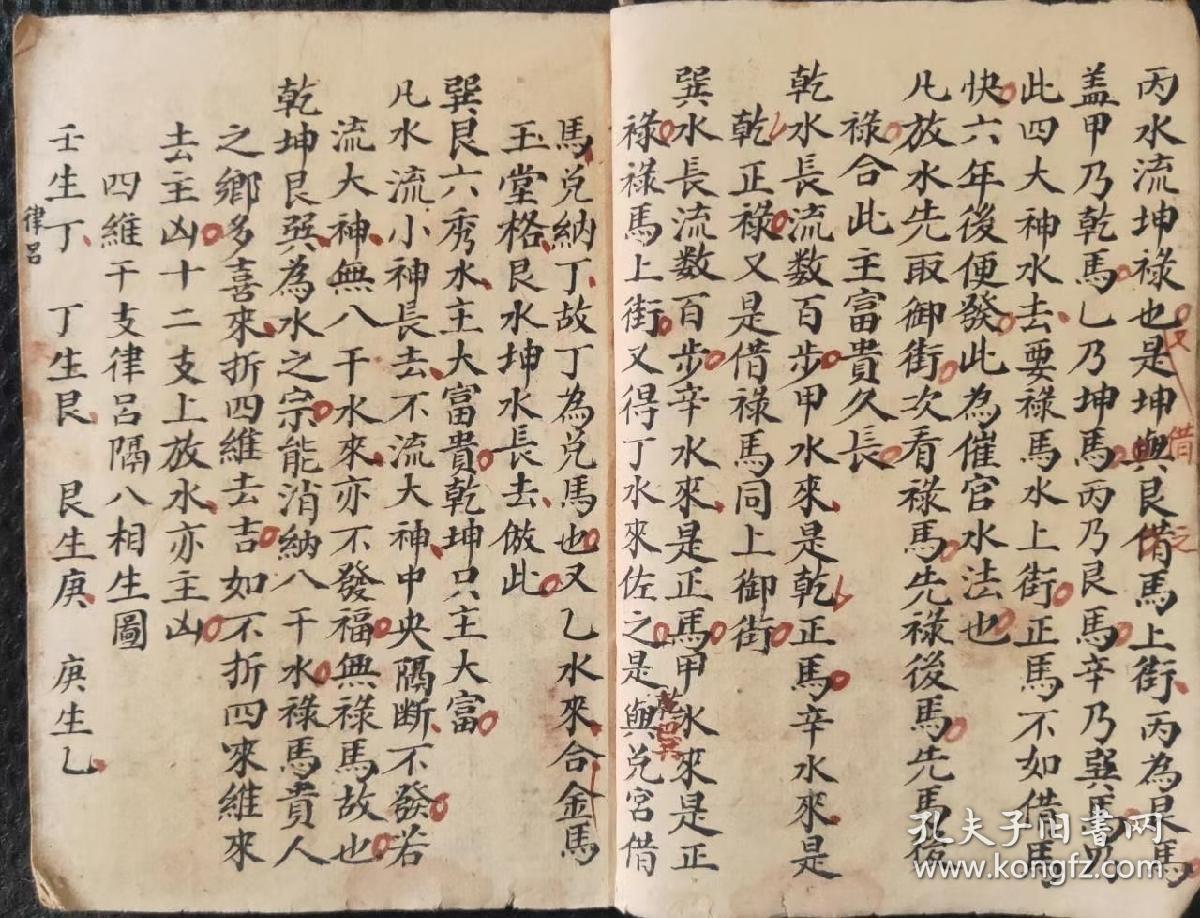 丙水流坤祿也是坤與艮借馬上街丙為艮馬
又借之
盖甲乃乾馬乙乃坤馬丙乃艮馬辛乃巽馬乃
此四大神水去要祿馬水上街正馬不如借馬
快六年後便發此為催官水法也
凡放水先取御街次看祿馬先祿後馬先馬後
祿合此主富貴久長
乾水長流数百步甲水來是乾正馬辛水來是
乾正祿又是借祿馬同上御街
巽水長流数百步辛水來是正馬甲水來是正
祿祿馬上街又得丁水來佐之是與兌宮借
馬兌納丁故丁為兌馬也又乙水來合金馬
玉堂格艮水坤水長去倣此
巽艮六秀水主大富貴乾坤只主大富
凡水流小神長去不流大神中央隔断不發若
流大神無八干水來亦不發福無祿馬故也
乾坤艮巽為水之宗能消納八干水祿馬貴人
之鄉多喜來折四維去吉如不折四來維來
去主凶十二支上放水亦主凶
四維干支律呂隔八相生圖
壬生丁 丁生艮 艮生庚 庚生乙
律呂
孔夫子旧书网
www.kongfz.com